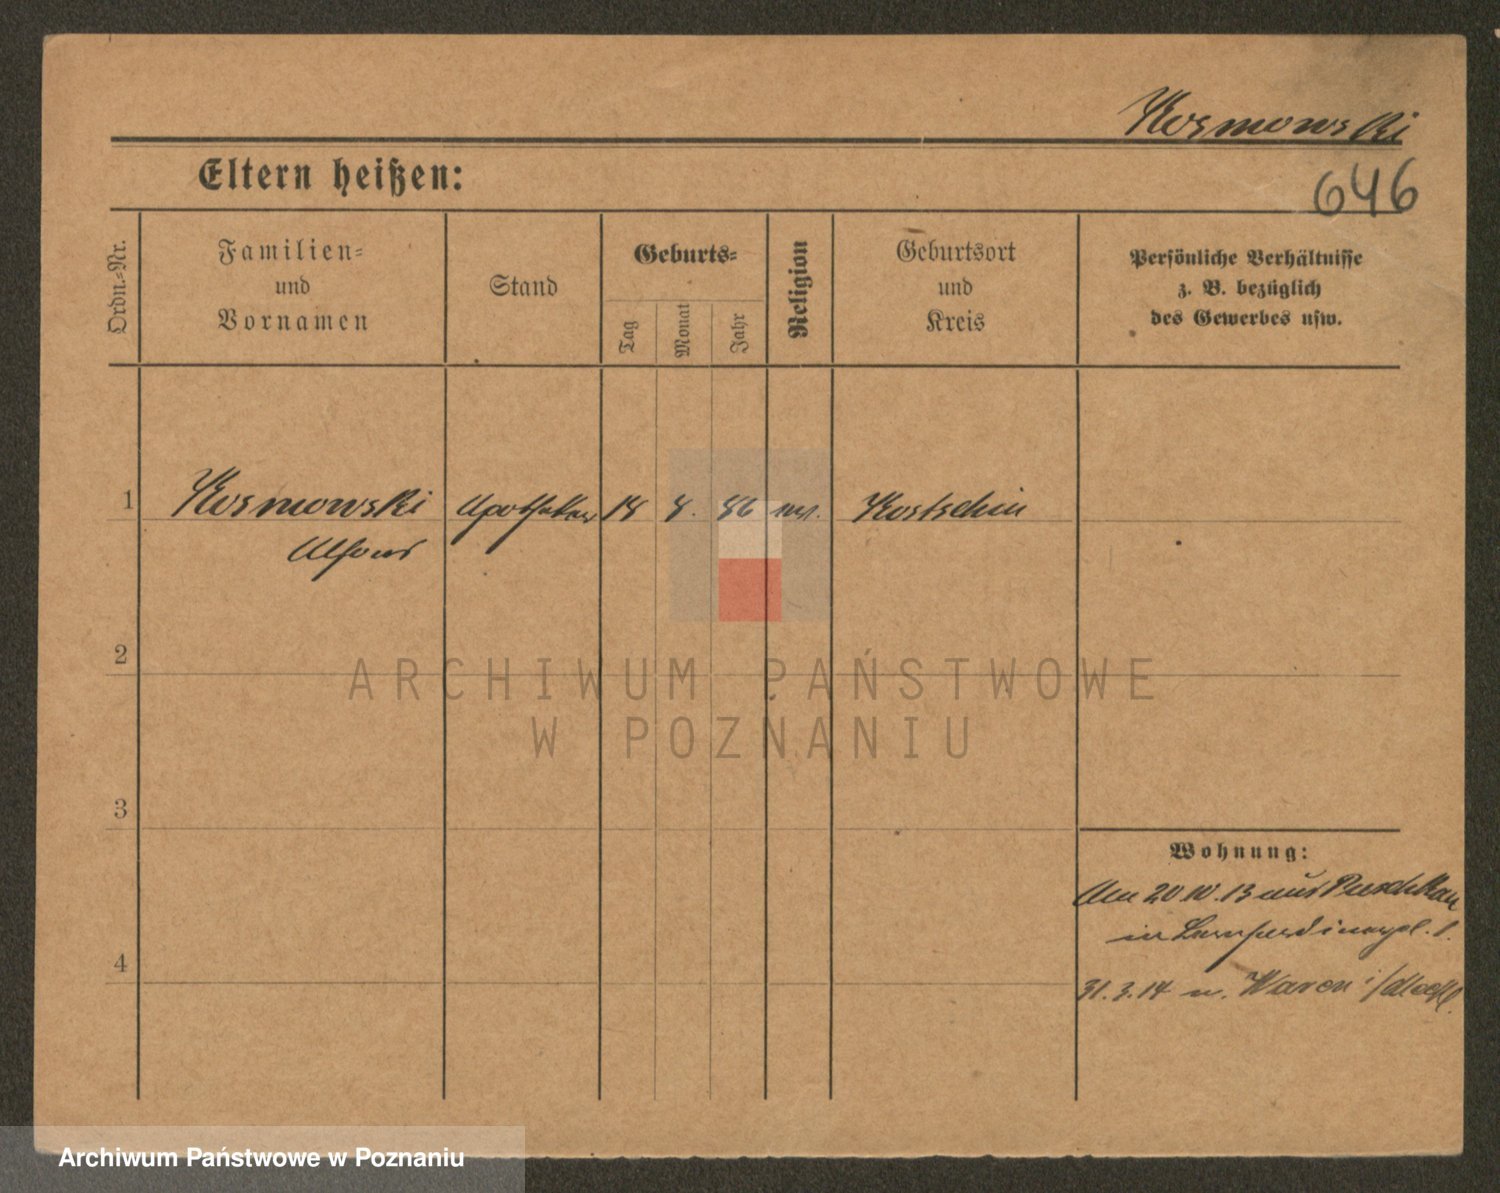 Kosmowski
Eltern heißen:
646
Ordn.-Nr.
Familien-
und
Vornamen
Stand
Geburts-
Tag
Monat
Jahr
Religion
Geburtsort
und
Kreis
Persönliche Verhältnisse
z. B. bezüglich
des Gewerbes usw.
1
Kosmowski
Alfons
Apotheker
18
8.
86
Kostschin
2
ARCHIWUM PAŃSTWOWE
W POZNANIU
3
Wohnung:
Am 20 10. 13 aus
in
4
31.3.14 n. Waren i/Meckl.
Archiwum Państwowe w Poznaniu